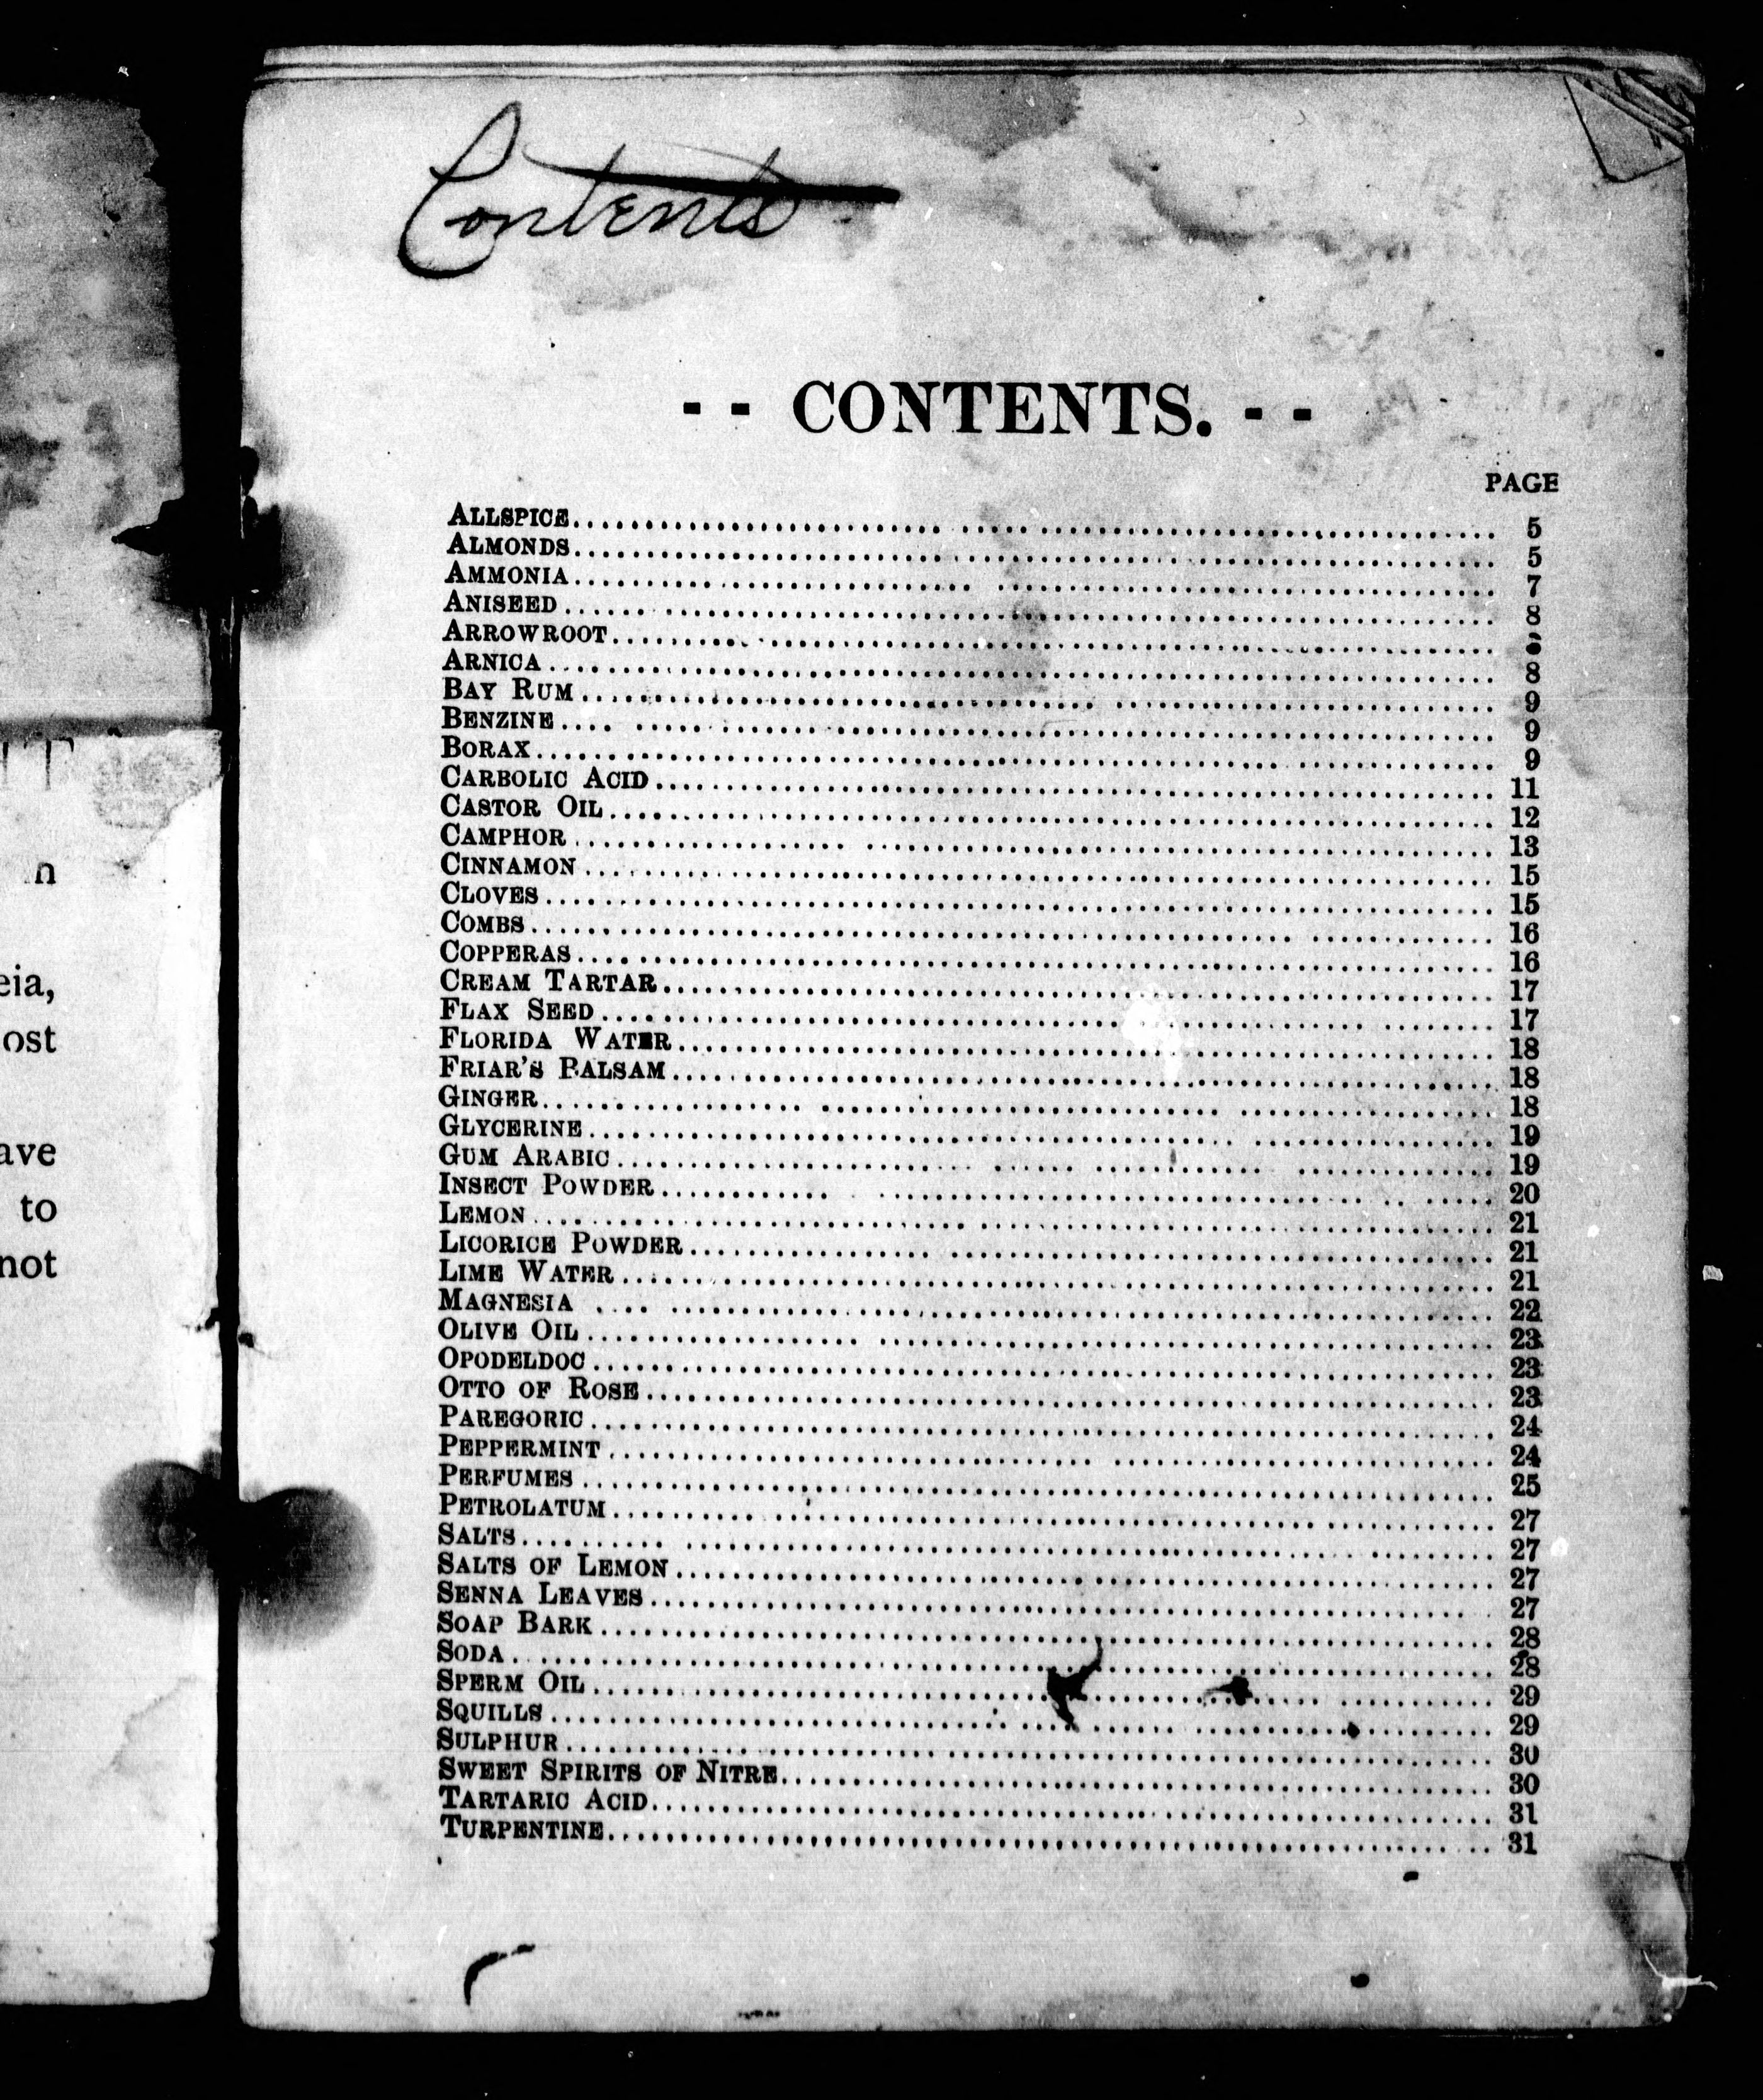 Contents
-- CONTENTS. --
PAGE
ALLSPICE 5
ALMONDS 5
AMMONIA 7
ANISEED 8
ARROWROOT
ARNICA 8
BAY RUM 9
BENZINE 9
BORAX 9
CARBOLIC ACID 11
CASTOR OIL 12
CAMPHOR 13
CINNAMON 15
CLOVES 15
COMBS 16
COPPERAS 16
CREAM TARTAR 17
FLAX SEED 17
FLORIDA WATER 18
FRIAR'S BALSAM 18
GINGER 18
GLYCERINE 19
GUM ARABIC 19
INSECT POWDER 20
LEMON 21
LICORICE POWDER 21
LIME WATER 21
MAGNESIA 22
OLIVE OIL 23
OPODELDOC 23
OTTO OF ROSE 23
PAREGORIC 24
PEPPERMINT 24
PERFUMES 25
PETROLATUM 27
SALTS 27
SALTS OF LEMON 27
SENNA LEAVES 27
SOAP BARK 28
SODA 28
SPERM OIL 29
SQUILLS 29
SULPHUR 30
SWEET SPIRITS OF NITRE 30
TARTARIC ACID 31
TURPENTINE 31
eia,
ost
ave
to
not